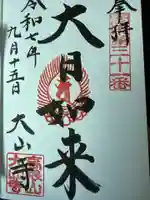 奉拝
大日如来
大山寺
令和七年
九月十五日